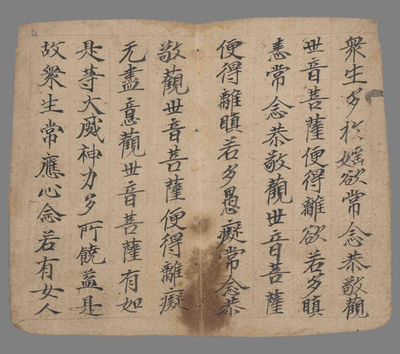 衆生多扵婬欲常念恭敬觀
世音菩薩便得離欲若多瞋
恚常念恭敬觀世音菩薩
便得離瞋若多愚癡常念恭
敬觀世音菩薩便得離癡
无盡意觀世音菩薩有如
是等大威神力多所饒益是
故衆生常應心念若有女人